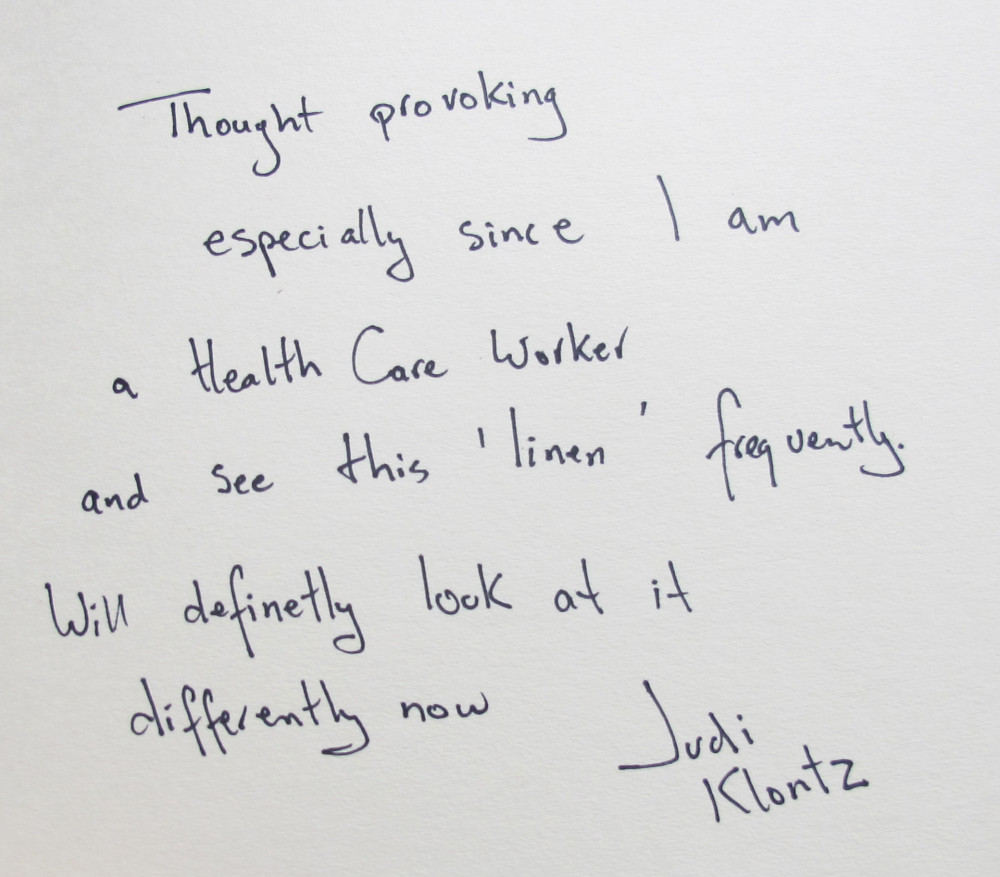 Thought provoking
especially since I am
a Health Care Worker
and see this 'linen' frequently.
Will definetly look at it
differently now
Judi
Klontz